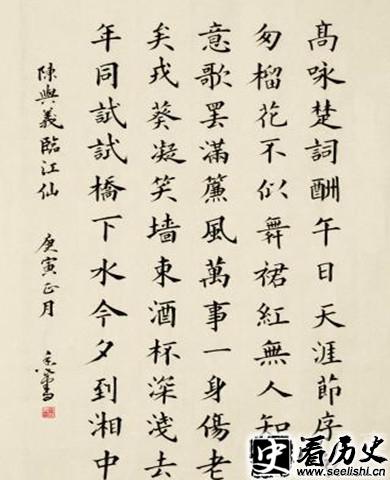 髙咏楚詞酬午日天涯節序
匆榴花不似舞裙紅無人知
意歌罷滿簾風萬事一身傷老
矣戎葵凝笑墙東酒杯深淺去
年同試試橋下水今夕到湘中
陳與義臨江仙 庚寅正月
史 看历史
www.seelishi.com